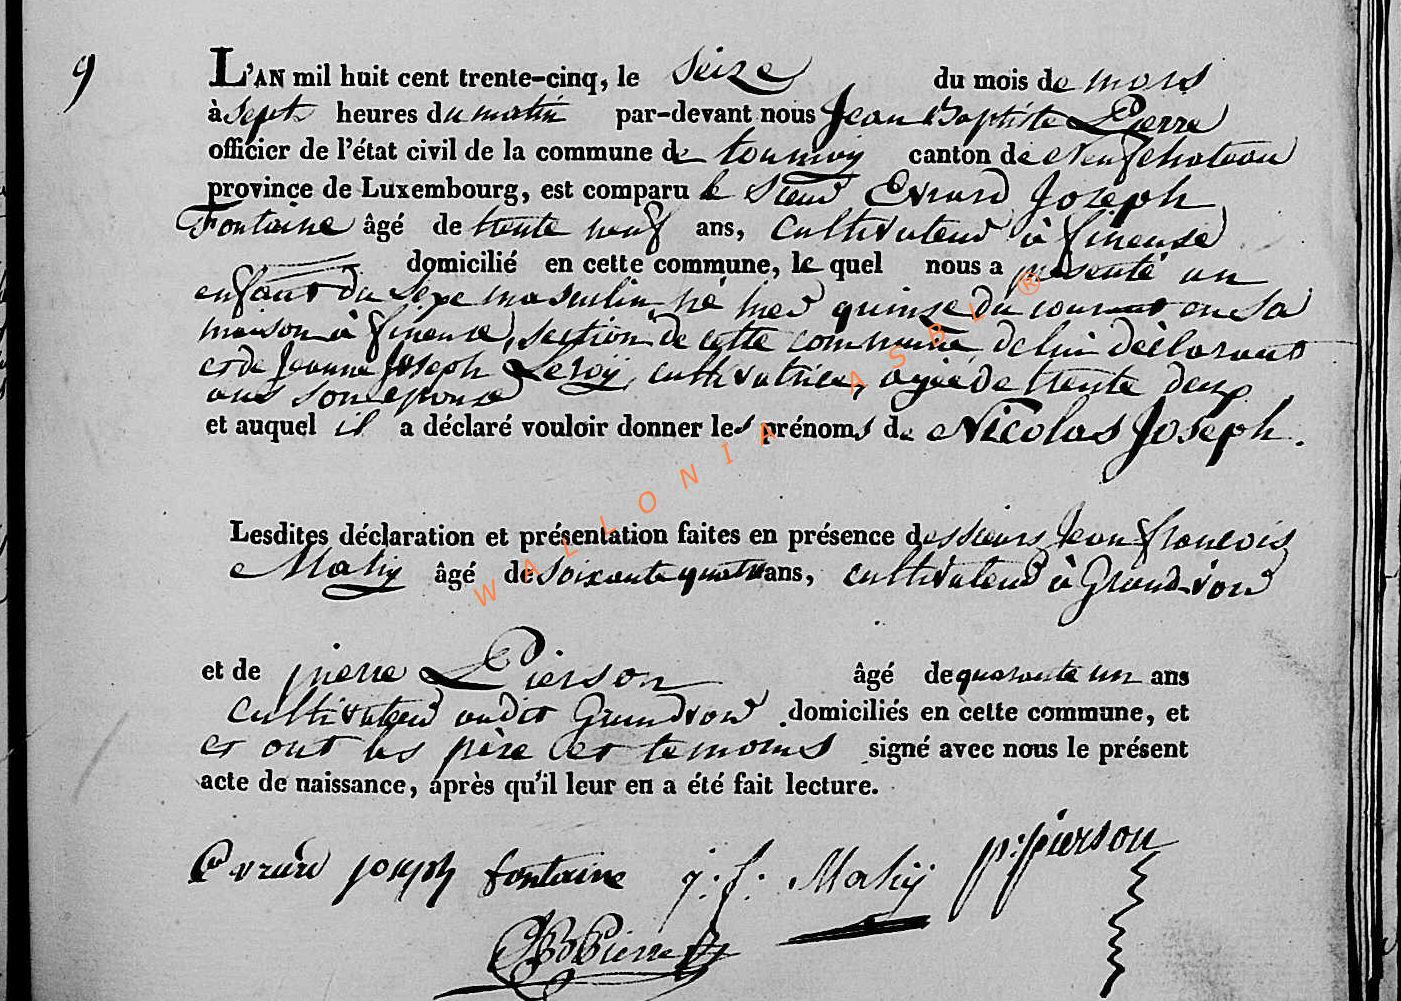 9
L'AN mil huit cent trente-cinq, le Seize du mois de mars
à sept heures du matin par-devant nous Jean Baptiste Pierre
officier de l'état civil de la commune de tournay canton de Neufchateau
province de Luxembourg, est comparu le Sieur Evrard Joseph
Fontaine âgé de trente neuf ans, Cultivateur à fineuse
domicilié en cette commune, le quel nous a présenté un
enfant du Sexe masculin, né hier quinze du courant en sa
maison à fineuse, section de cette commune, de lui déclarant
et de Jeanne Joseph Leroÿ, cultivatrice, agée de trente deux
ans son epouse
et auquel il a déclaré vouloir donner les prénoms de Nicolas Joseph.
Lesdites déclaration et présentation faites en présence des sieurs Jean françois
Mahy âgé de soixante quatre ans, cultivateur à Grandvoir
et de pierre Pierson âgé de quarante un ans
Cultivateur audit Grandvoir domiciliés en cette commune, et
et ont les père et temoins signé avec nous le présent
acte de naissance, après qu'il leur en a été fait lecture.
Evrard joseph fontaine j: f: Mahÿ p: pierson
JB Pierre
WALLONIA ASBL ®